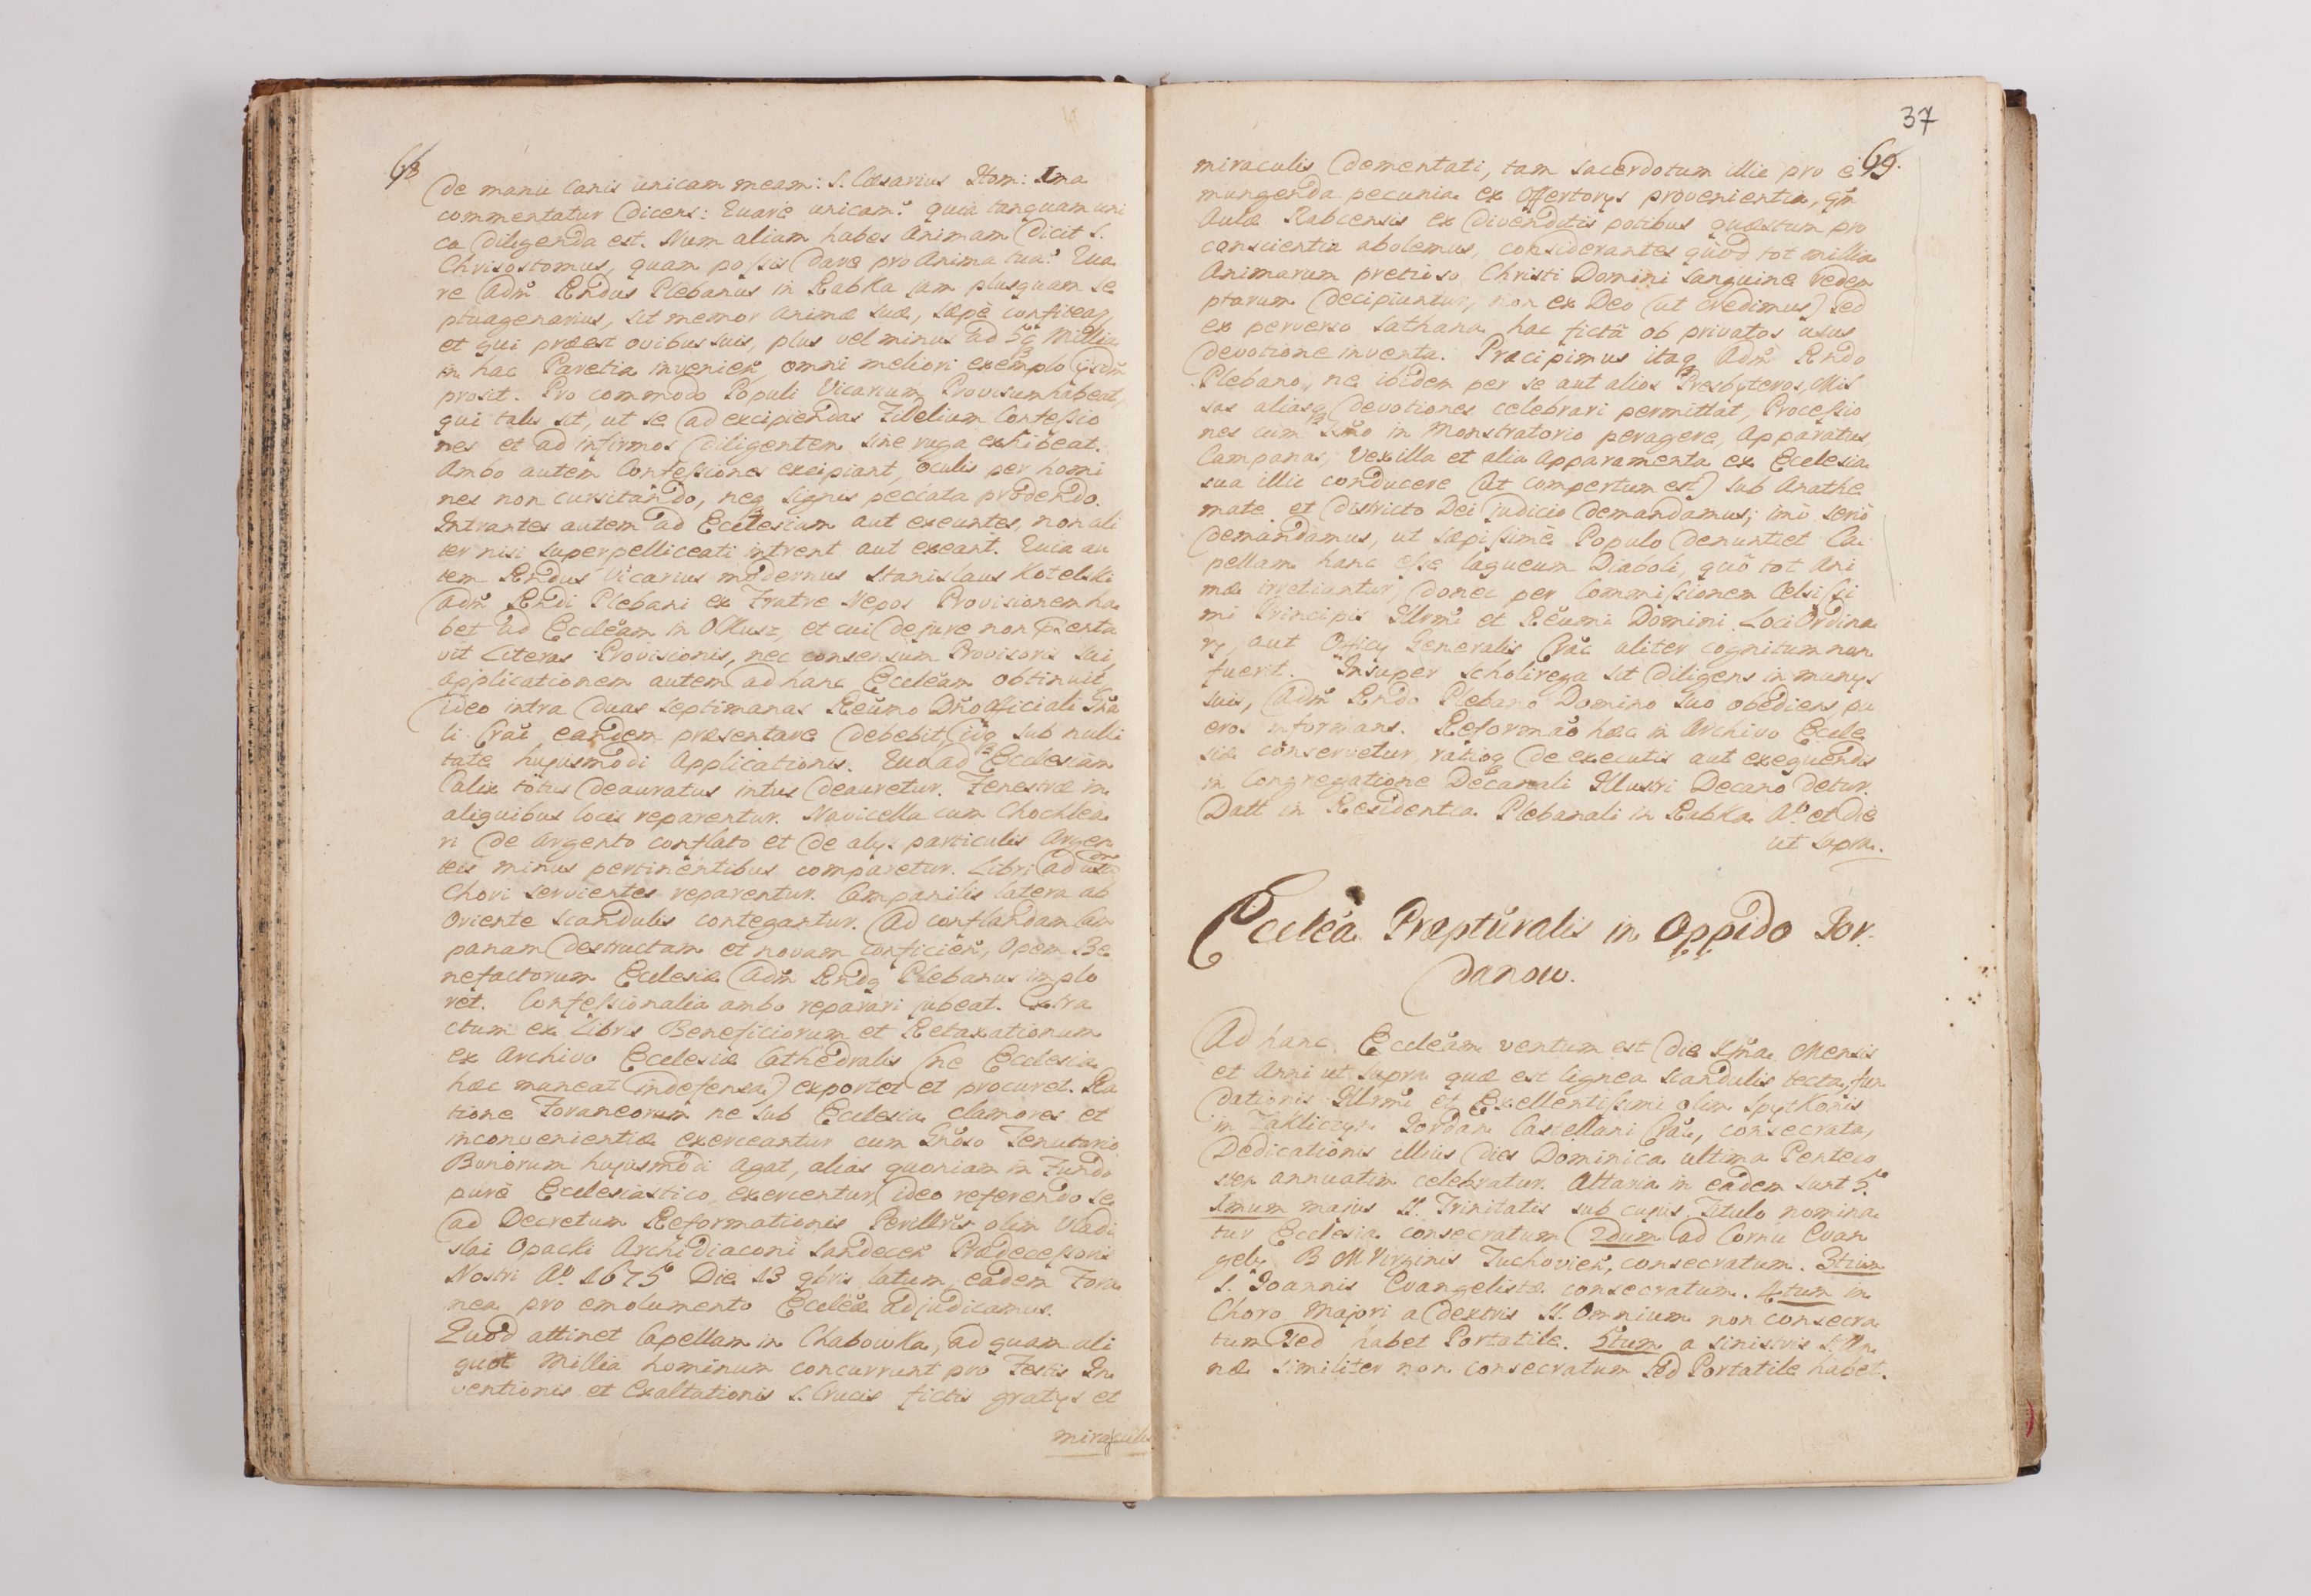 68
De manu Canis unicam meam: S. Cæsarius Hom: Ima
commentatur dicens: Quare unicam? quia tanquam uni
ca diligenda est. Num aliam habes Animam dicit S.
Chrisostomus, quam possis dare pro Anima tua? Qua
re Adm̃ Rñdus Plebanus in Rabka jam plusquam se
ptuagenarius, sit memor Animæ suæ, sæpè confitea
et qui præest ovibus suis, plus vel minus ad 5q Millia
in hac Parœtia omni meliori exemplo
prosit. Pro commodo Populi Vicarium Provisum habeat,
qui talis sit, ut se ad excipiendas Fidelium Confessio
nes et ad infirmos diligentem sine ruga exhibeat.
Ambo autem Confessiones excipiant, oculis per homi
nes non cursitando, neq signis peccata prodendo.
Intrantes autem ad Ecclesiam aut exeuntes, non ali
ter nisi superpelliceati intrent aut exeant. Quia au
tem Rñdus Vicarius modernus Stanislaus Kotelski
Adm̃ Rñdi Plebani ex Fratre Nepos Provisionem ha
bet ad Eccleãm in Olkusz, et cui de jure non pẽnta
vit Literas Provisionis, nec consensum Provisoris sui,
applicationem autem ad hanc Eccleãm obtinuit,
ideo intra duas septimanas Reũmo Dño Officiali Gña
li Crac̃ eandem præsentare debebit idq sub nulli
tate hujusmodi Applicationis. Quo ad Ecclesiam
Calix totus deauratus intus deauretur. Fenestræ in
aliquibus locis reparentur. Navicella cum Chochlea
ri de Argento conflato et de alys particulis Argen
teis minus pertinentibus comparetur. Libri ad usum
Chori servientes reparentur. Campanilis latera ab
Oriente scandulis contegantur. Ad conflandam Cam
panam destructam et novam conficieñ, Opem Be
nefactorum Ecclesiæ Adm̃ Rñdq Plebanus implo
ret. Confessionalia ambo reparari jubeat. Extra
ctum ex Libris Beneficiorum et Retaxationum
ex Archivo Ecclesiæ Cathedralis (ne Ecclesia
hæc maneat indefensa) exportet et procuret. Ra
tione Foraneorum ne sub Ecclesia clamores et
inconvenientiæ exerceantur cum Gñoso Tenutario
Bonorum hujusmodi agat, alias quoniam in Fundo
purè Ecclesiastico exercentur, ideo referendo se
ad Decretum Reformationis Perillr̃is olim Vladi
slai Opacki Archidiaconi Sandeceñ Prædecessoris
Nostri Aº 1675º Die 13 9bris latum, eadem Fora
nea pro emolumento Eccleæ adjudicamus.
Quod attinet Capellam in Chabowka, ad quam ali
quot Millia hominum concurrunt pro Festis In
ventionis et Exaltationis S. Crucis fictis gratys et
miraculis
37
69.
miraculis dementati, tam sacerdotum illic pro e
mungenda pecunia ex Offertorys provenientia, qm̃
Aulæ Rabcensis ex divenditis potibus quæstum pro
conscientia abolemus, considerantes quòd tot millia
Animarum pretioso Christi Domini Sanguine redem
ptarum decipiuntur, non ex Deo (ut credimus) sed
ex perverso Sathana hac fictã ob privatos usus
devotione inventa. Præcipimus itaq Adm̃ Rñdo
Plebano, ne ibidem per se aut alios Presbyteros, Mis
sas aliasq devotiones celebrari permittat, Processio
nes cum Smo in Monstratorio peragere, Apparatus,
Campanas, Vexilla et alia Apparamenta ex Ecclesia
sua illic conducere (ut compertum est) sub Anathe
mate et districto Dei judicio demandamus; imò seriò
demandamus, ut sæpissimè Populo denuntiet Ca
pellam hanc esse laqueum Diaboli, quô tot Ani
mæ irretiuntur, donec per Commissionem Celsissi
mi Principis Illr̃mi et Reũmi Domini Loci Ordina
ry, aut Officy Generalis Crac̃ aliter cognitum non
fuerit. Insuper Scholirega sit diligens in munys
suis, Adm̃ Rñdo Plebano Domino suo obediens, pu
eros informans. Reformão hæc in Archivo Eccle
siæ conservetur, ratioq de executis aut exequendis
in Congregatione Decanali Illustri Decano detur.
Datt in Residentia Plebanali in Rabka Aº et Die
ut supra.
Eccleã Præptũralis in Oppido Jor
danow.
Ad hanc Eccleãm ventum est die Mensis
et Anni ut supra quæ est lignea scandulis tecta, fun
dationis Illr̃mi et Excellentissimi olim Spytkonis
in Zakliczyn Jordan Castellani Crac̃, consecrata,
Dedicationis illius dies Dominica ultima Penteco
steñ annuatim celebratur. Altaria in eadem sunt 5.
1mum majus SS. Trinitatis sub cujus Titulo nomina
tur Ecclesia consecratum. 2dum ad Cornu Evan
gely B M Virginis Tuchovieñ, consecratum. 3tium
S. Joannis Evangelistæ consecratum. 4tum in
Choro Majori a dextris SS. Omnium non consecra
tum sed habet Portatile. 5tum a sinistris S. An
næ similiter non consecratum sed Portatile habet.